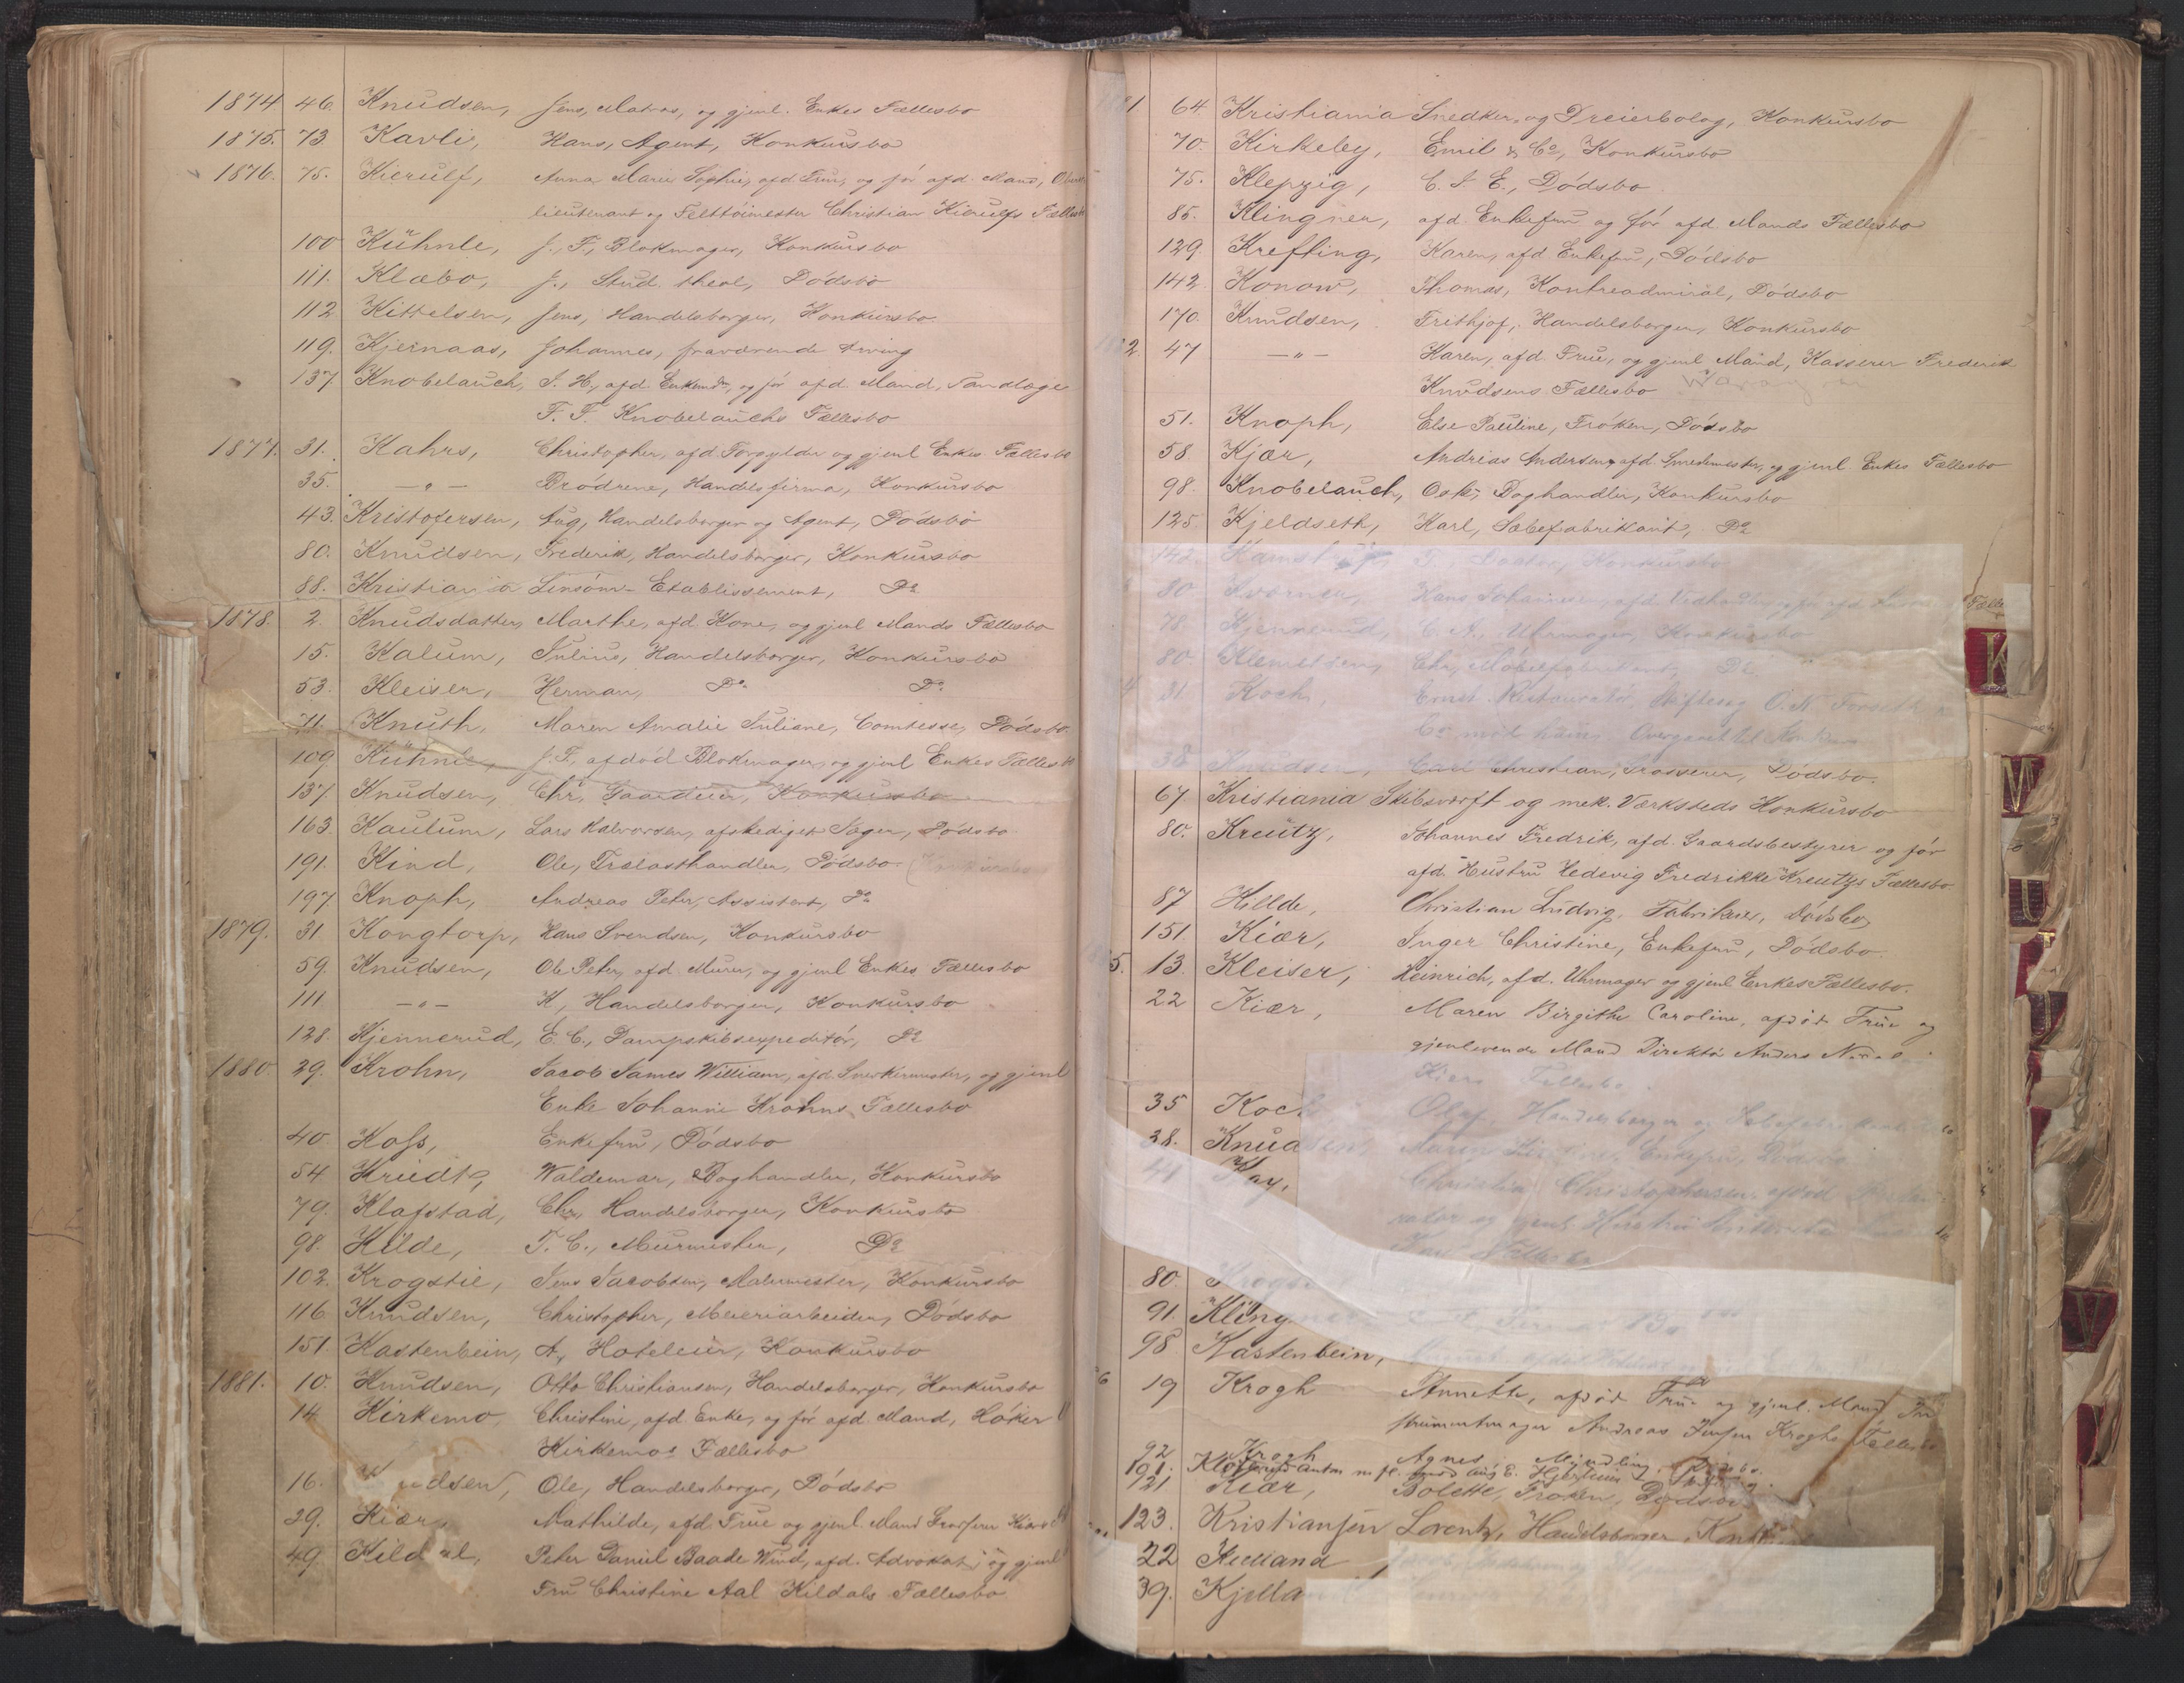 1874 46. Knudsen, Jens, Matros, og gjenl. Enkes Fællesbo
1875. 73 Kavli, Hans, Agent, Konkursbo
1876. 75. Kierulf, Anna Marie Sophie, afd. Frue, og før afd. Mand,
lieutenant og Felttøimester Christian Kierulfs Fællesb
100 Kühnle, J. F., Blokmager, Konkursbo
111. Klæbo, J., Stud. theol., Dødsbo
112 Kittelsen, Jens, Handelsborger, Konkursbo
119. Kjernaas, Johannes, fraværende Arving
137 Knobelauch, S. H., afd. Enkemd., og før afd. Mand, Tandlæge
F. F. Knobelauchs Fællesbo
1877. 31. Kahrs, Christopher, afd. Forgylder og gjenl Enkes Fællesbo
35. —„— Brødrene, Handelsfirma, Konkursbo
43. Kristofersen, Aug, Handelsborger og Agent, Dødsbo
80. Knudsen, Frederik, Handelsborger, Konkursbo
88. Kristiania Linsøm-Etablissement, Do
1878. 2. Knudsdatter, Marthe, afd. Kone, og gjenl Mands Fællesbo
15. Kalum, Julius, Handelsborger, Konkursbo
53. Kleiser, Herman, Do. Do.
71. Knuth, Maren Amalie Juliane, Comtesse, Dødsbo
109. Kühnle, J. F., afdød Blokmager, og gjenl Enkes Fællesb
137 Knudsen, Chr., Konkursbo
163. Kaulum, Lars Halvorsen, afskediget Soger, Dødsbo
191. Kind, Ole, Trælasthandler, Dødsbo (Konkursbo
197 Knoph, Andreas Peter, Assistent, Do
1879. 31 Kongtorp, Hans Svendsen, Konkursbo
59. Knudsen, Ole Peter, afd. Murer, og gjenl Enkes Fællesbo
111 —„— K., Handelsborger, Konkursbo
128. Kjennerud, E. C., Dampskibsexpeditør, Do
1880. 29. Krohn, Jacob James William, afd. Snedkermester, og gjenl
Enke Johanne Krohns Fællesbo
40. Koss, Enkefru, Dødsbo
54 Krüdtz, Waldemar, Boghandler, Konkursbo
79. Klafstad, Chr., Handelsborger, Konkursbo
98. Kilde, T. C., Murmester, Do
102. Krogstie, Jens Jacobsen, Malermester, Konkursbo
116 Knudsen, Christopher, Meieriarbeider, Dødsbo
151. Kastenbein, A., Hoteleier, Konkursbo
1881. 10. Knudsen, Otto Christiansen, Handelsborger, Konkursbo
14 Kirkemo, Christine, afd. Enke, og før afd. Mand, Høker
Kirkemos Fællesbo
16. K udsen, Ole, Handelsborger, Dødsbo
29. Kiær, Mathilde, afd. Frue og gjenl Mand Grosserer Kiærs
49. Kildal, Peter Daniel Baade Wind, afd. Advokat, og gjenl
Fru Christine Aal Kildals Fællesbo
1 64. Kristiania Snedker- og Dreierbolag, Konkursbo
70. Kirkeby, Emil & Co, Konkursbo
75. Klepzig, C. J. E., Dødsbo
85. Klingner, afd. Enkefru og før afd. Mands Fællesbo
129. Krefting, Karen, afd Enkefru, Dødsbo
142. Konow, Thomas, Kontreadmiral, Dødsbo
170. Knudsen, Frithjof, Handelsborger, Konkursbo
2. 47 —„— Karen, afd. Frue, og gjenl Mand, Kasserer Frederik
Knudsens Fællesbo
51. Knoph, Else Pauline, Frøken, Dødsbo
58 Kjær, Andreas Andersen, afd. Smedemester, og gjenl. Enkes Fællesbo
98. Knobelauch, Osk., Boghandler, Konkursbo
125. Kjeldseth, Karl, Sæbefabrikant, Do
142. Kamstrup, Konkursbo
80 Kværner, Hans Johannesen, afd. Vedhandler, og før afd. Fælle
78. Kjennerud, C. A., Uhrmager, Konkursbo
80. Klemetsen, Chr., Møbelfabrikant, Do
31. Koch, Ernst, Restauratør, Skiftesag O. N. Forseth &
Co med
38 Knudsen, Carl Christian, Grosserer, Dødsbo.
67. Kristiania Skibsværft og mek. Værksteds Konkursbo
80. Kreutz, Johannes Fredrik, afd. Gaardsbestyrer og før
afd. Hustru Hedevig Fredrikke Kreutzs Fællesbo
87 Kilde, Christian Ludvig, Fabrikeier, Dødsbo
151 Kiær, Inger Christine, Enkefru, Dødsbo.
5. 13. Kleiser, Heinrich, afd. Uhrmager og gjenl Enkes Fællesbo.
22 Kiær, Maren Birgithe Caroline, afdød Frue og
gjenlevende Mand Direktør Anders
Kiærs Fællesbo.
35 Koch Oluf, Handelsborger og Sæbefabrikant
38. Knudsen, Maren Enkefru, Dødsbo
41 Kay, Christian Christophersen, afdød
og gjenl. Hustru
Kays Fællesbo
80. Krogs
91. Klingner
98 Kastenbein,
6 19 Krogh Annette, afdød Frue og gjenl. Mand In
strumentmager Andreas Jensen Kroghs Fælles
92 Krogh Agnes, Myndling, Dødsbo.
191. Anton m fl. mod Aug. E.
121 Kiær, Bolette, Frøken, Dødsbo
123. Kristiansen Lorentz, Handelsborger, Konk
22 Kielland
39. Kjella
K